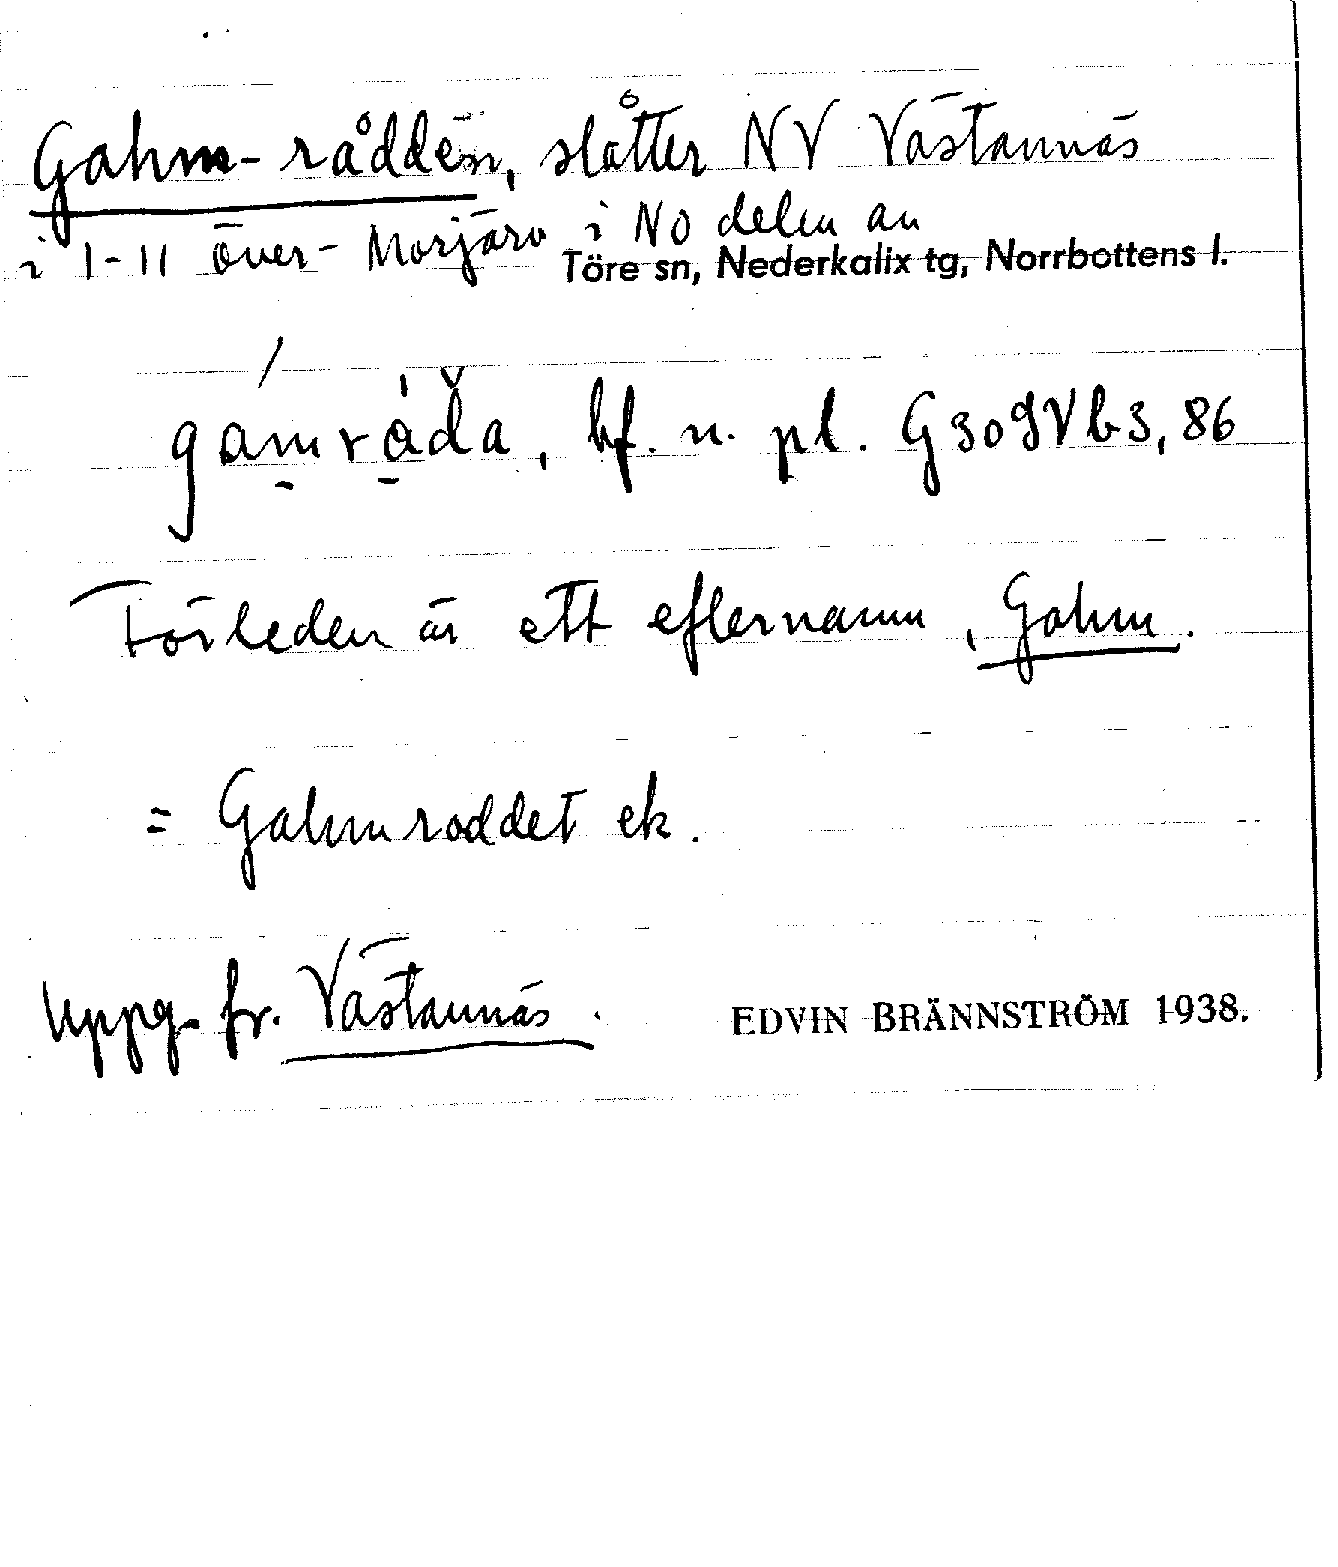 Gahm-rådden, slåtter NV Västannäs
i 1-11 Över-Morjärv i NO delen av
Töre sn, Nederkalix tg, Norrbottens l.
gamråda, bf. n. pl. G 309Vb3,86
Förleden är ett efternamn, Gahm.
= Gahmroddet ek.
Uppg. fr. Västannäs.
EDVIN BRÄNNSTRÖM 1938.